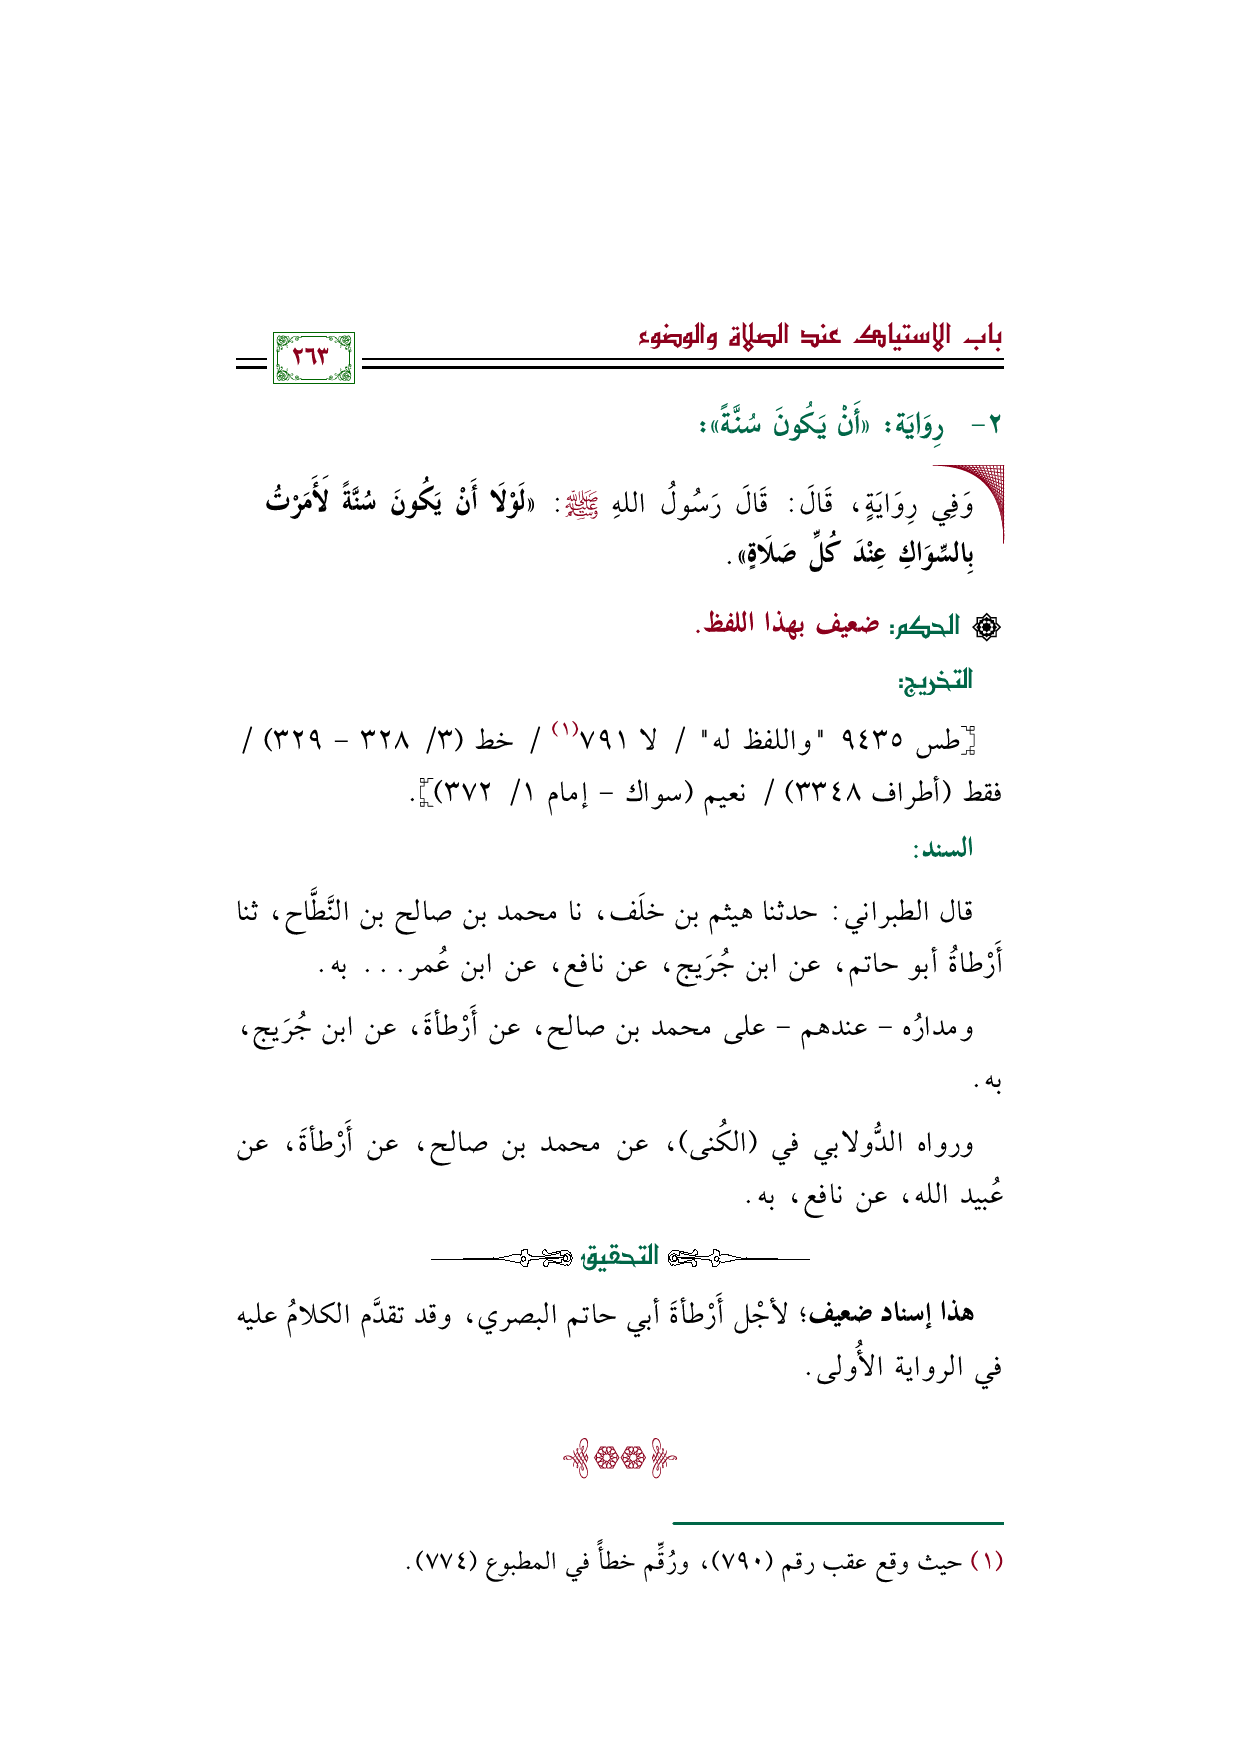 باب الاستياك عند الصلاة والوضوء
٢٦٣
٢- رِوَايَة: «أَنْ يَكُونَ سُنَّةً»:
وَفِي رِوَايَةٍ، قَالَ: قَالَ رَسُولُ اللهِ ﷺ: «لَوْلَا أَنْ يَكُونَ سُنَّةً لَأَمَرْتُ
بِالسِّوَاكِ عِنْدَ كُلِّ صَلَاةٍ».
الحكم: ضعيف بهذا اللفظ.
التخريج:
[طس ٩٤٣٥ "واللفظ له" / لا ٧٩١(١) / خط (٣/ ٣٢٨ - ٣٢٩) /
فقط (أطراف ٣٣٤٨) / نعيم (سواك - إمام ١/ ٣٧٢)].
السند:
قال الطبراني: حدثنا هيثم بن خلَف، نا محمد بن صالح بن النَّطَّاح، ثنا
أَرْطاةُ أبو حاتم، عن ابن جُرَيج، عن نافع، عن ابن عُمر... به.
ومدارُه - عندهم - على محمد بن صالح، عن أَرْطأةَ، عن ابن جُرَيج،
به.
ورواه الدُّولابي في (الكُنى)، عن محمد بن صالح، عن أَرْطأةَ، عن
عُبيد الله، عن نافع، به.
التحقيق
هذا إسناد ضعيف؛ لأجْل أَرْطأةَ أبي حاتم البصري، وقد تقدَّم الكلامُ عليه
في الرواية الأُولى.
(١) حيث وقع عقب رقم (٧٩٠)، ورُقِّم خطأً في المطبوع (٧٧٤).